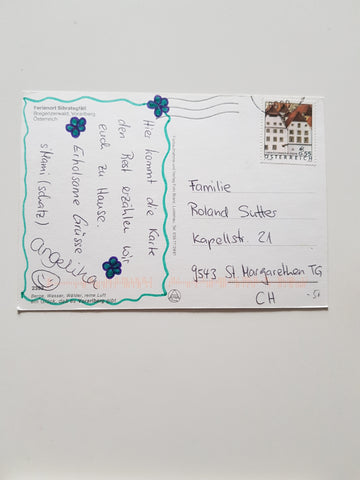 Ferienort Sibratsgfäll
Bregenzerwald, Vorarlberg
Österreich
Hier kommt die Karte
den Rest erzählen wir
euch zu Hause.
Erholsame Grüsse
Angelina
2293
Berge, Wasser, Wälder, reine Luft
ein Glück, daß es Vorarlberg gibt
0,55
ÖSTERREICH
Familie
Roland Sutter
Kapellstr. 21
9543 St. Margarethen TG
CH